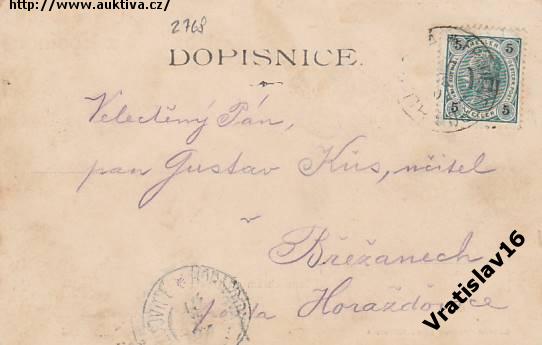 http://www.auktiva.cz/
2768
DOPISNICE.
5 5
5 5
Velectěný Pán,
pan Gustav Kůs, učitel
v
Břežanech
pošta Horažďovice
Vratislav16